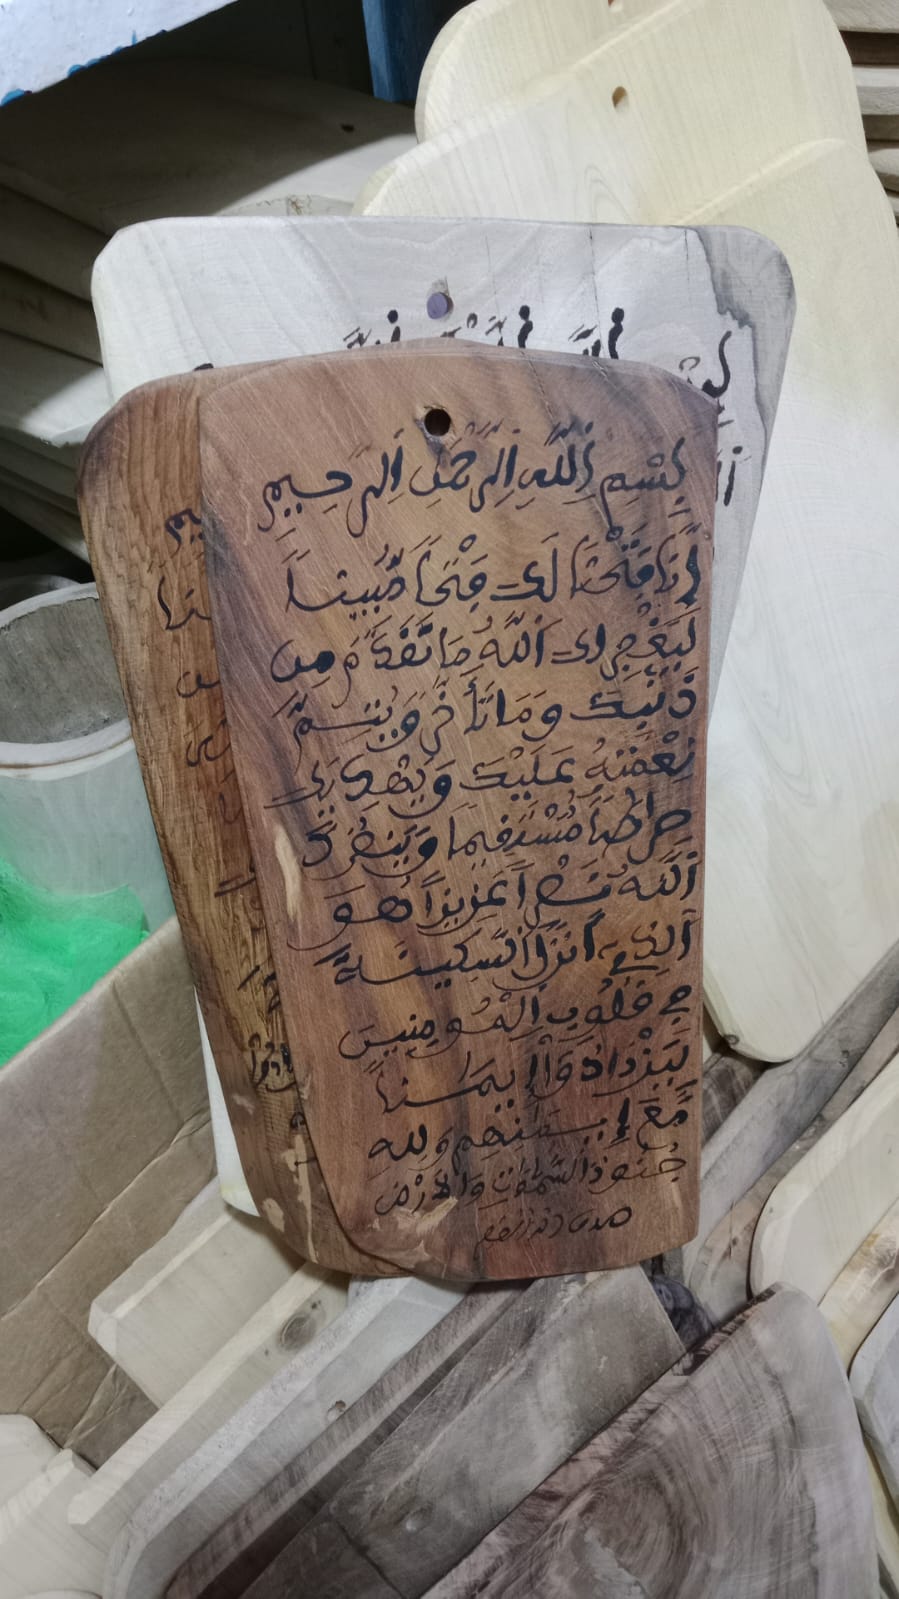 بِسْمِ اِللَّهِ اِلرَّحْمَٰنِ اِلرَّحِيمِ
إِنَّا فَتَحْنَا لَكَ فَتْحاً مُّبِيناً
لِّيَغْفِرَ لَكَ اَللَّهُ مَا تَقَدَّمَ مِن
ذَنۢبِكَ وَمَا تَأَخَّرَ وَيُتِمَّ
نِعْمَتَهُ عَلَيْكَ وَيَهْدِيَكَ
صِرَاطاً مُّسْتَقِيماً وَيَنصُرَكَ
اَللَّهُ نَصْراً عَزِيزاً هُوَ
اَلذِےٓ أَنزَلَ اَلسَّكِينَةَ
فِے قُلُوبِ اِلْمُومِنِينَ
لِيَزْدَادُوٓاْ إِيمَٰناً
مَّعَ إِيمَٰنِهِمْ وَلِلهِ
جُنُودُ اَلسَّمَٰوَٰتِ وَالَارْضِ
صدق الله العظيم